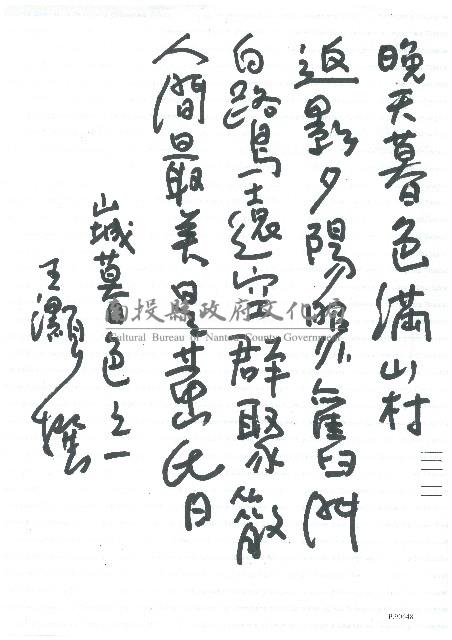 晚天暮色滿山村
返影夕陽照舊門
白鷺還空群聚散
人間最美是黃昏
山城暮色之一
王灝撰
南投縣政府文化局
Cultural Bureau of Nantou County Government